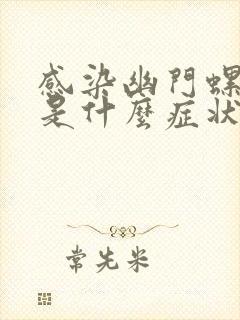 感染幽門螺
是什麼症狀
常先米